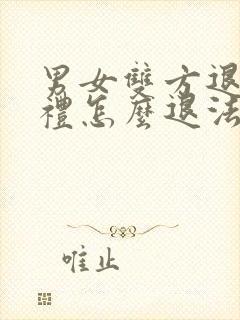 男女雙方退
禮怎麼退法
唯止